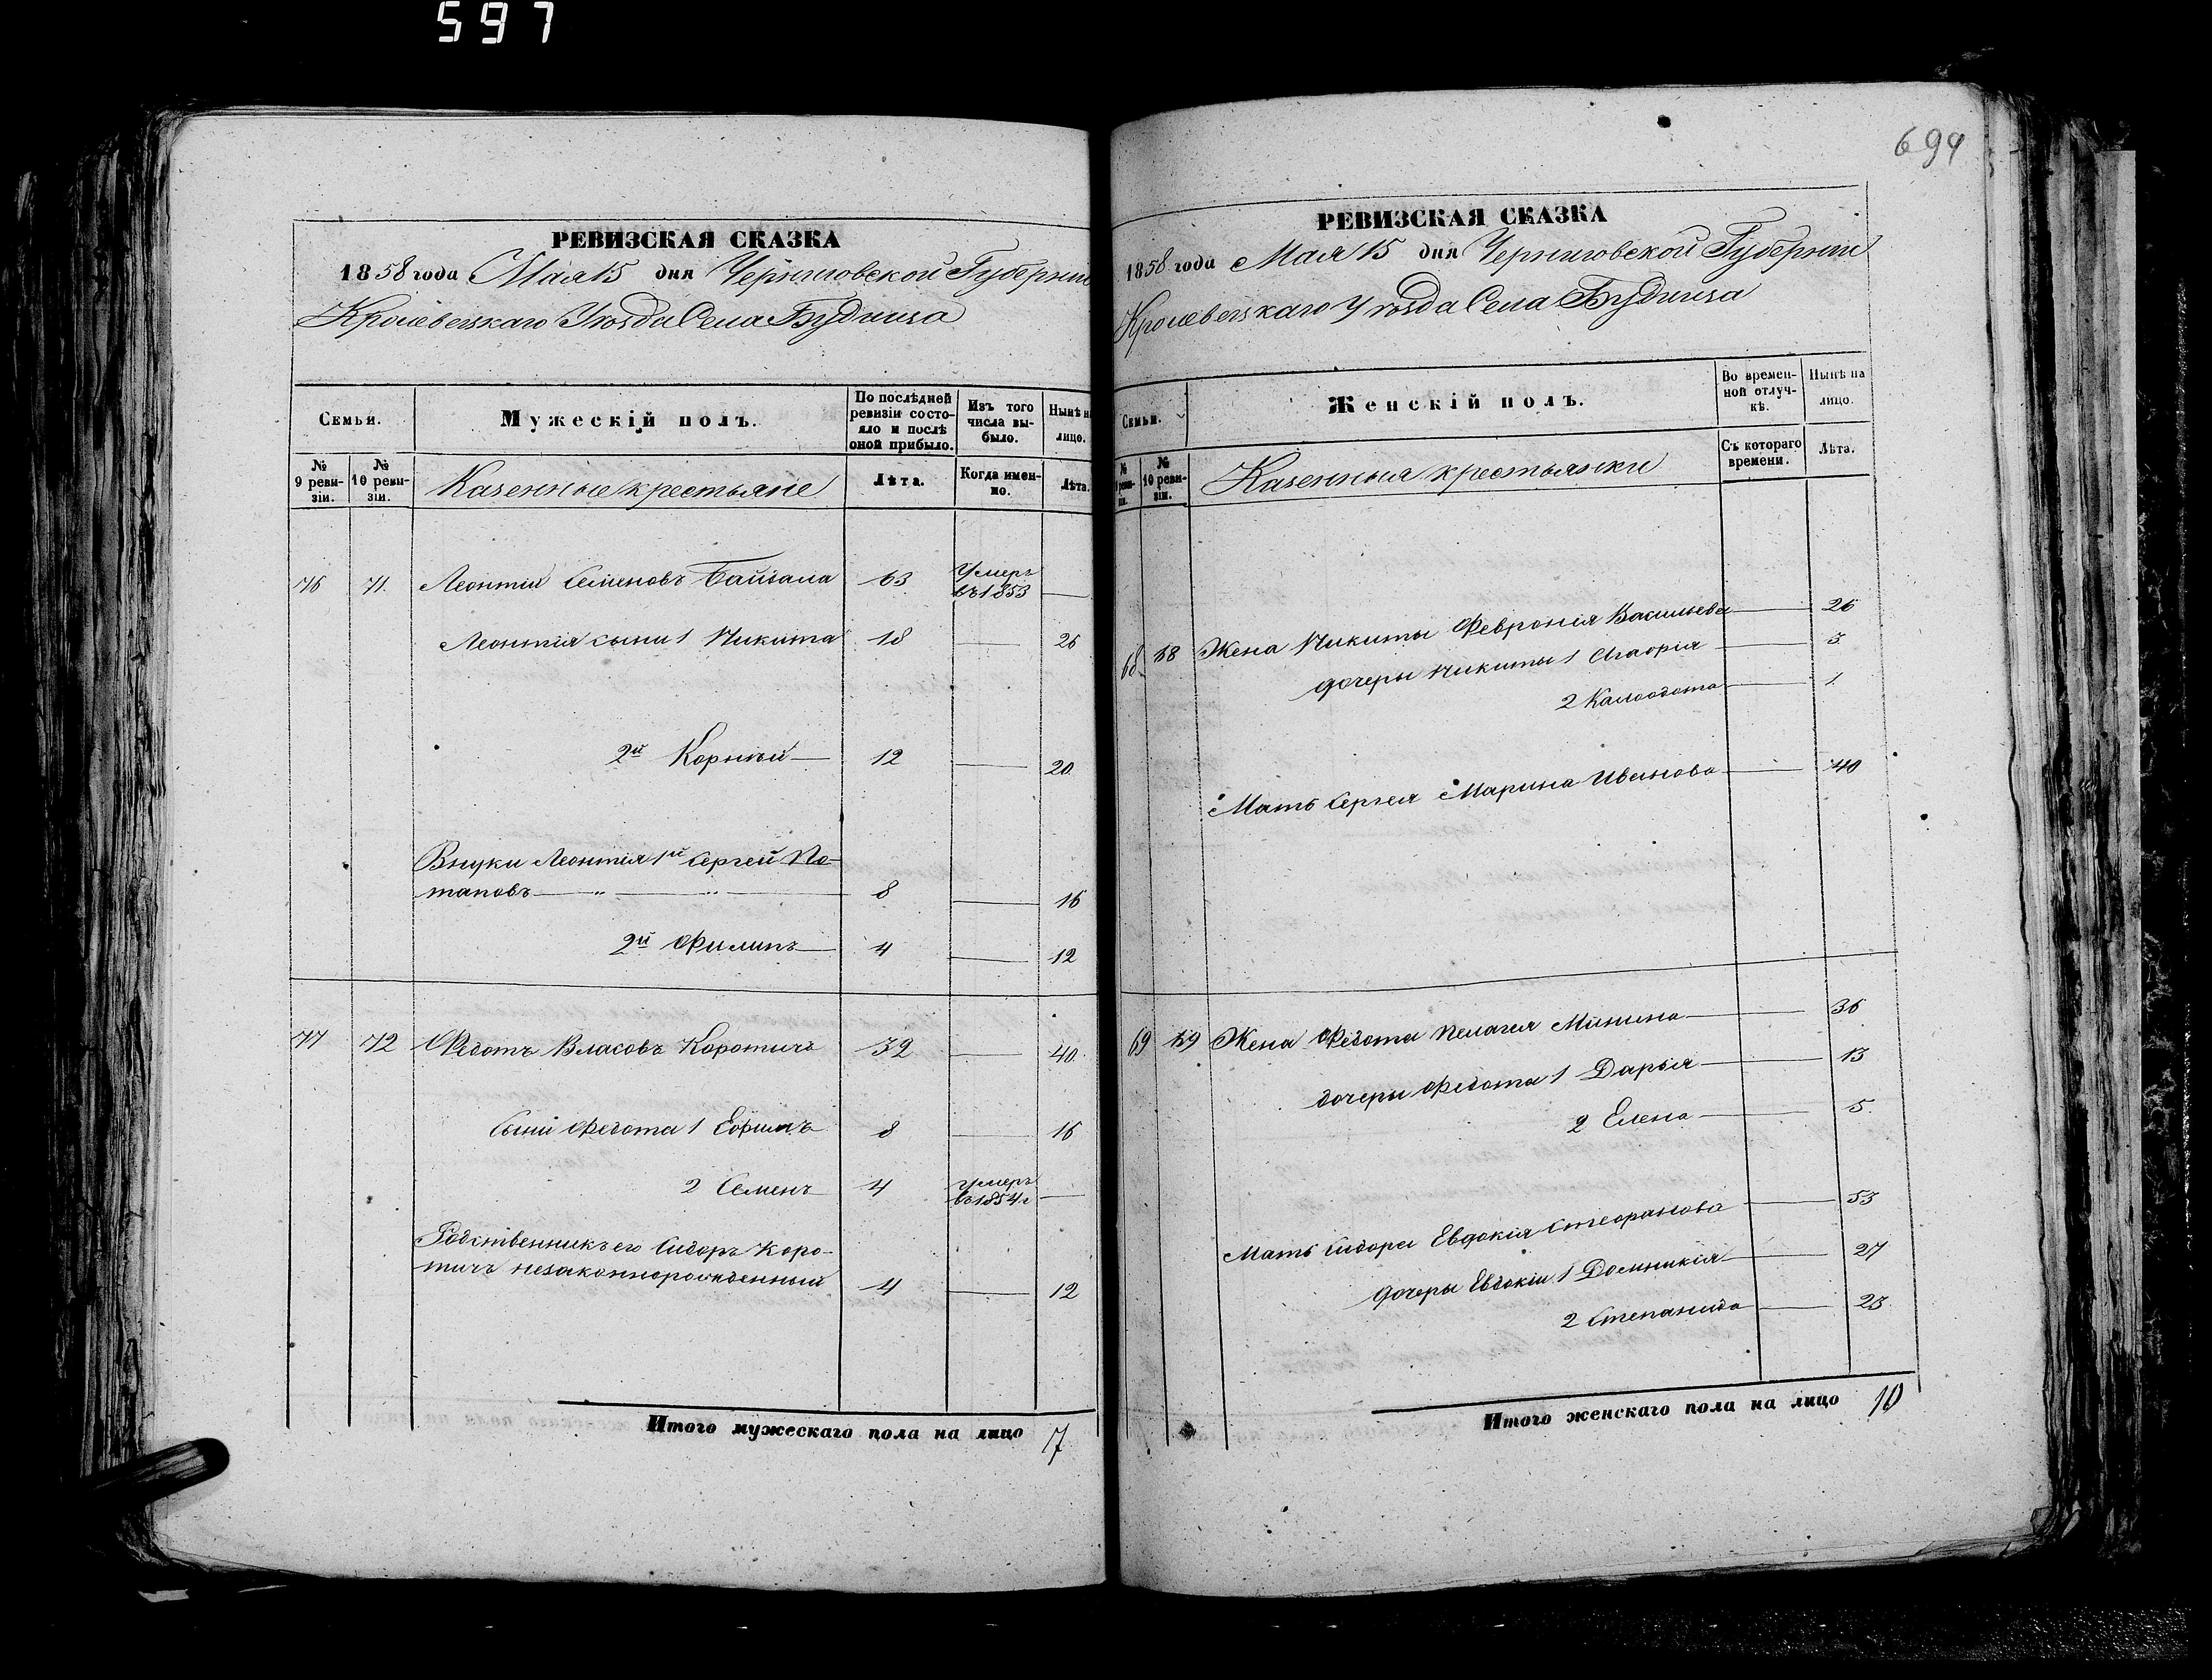 597
694
РЕВИЗСКАЯ СКАЗКА
1858 года Мая 15 дня Черниговской Губерніи
Кролевецкаго Уѣзда Села Будища
Семьи.
Мужескій полъ.
По послѣдней ревизіи состояло и послѣ оной прибыло.
Изъ того числа выбыло.
Нынѣ на лицо.
№ 9 ревизіи.
№ 10 ревизіи.
Казенные крестьяне
Лѣта.
Когда именно.
Лѣта.
76 71. Леонтій Семеновъ 63 Умеръ въ 1853 —
Леонтія сыны 1 Никита 18 — 26
2й Корнѣй — 12 — 20
Внуки Леонтія 1й Сергей По-
таповъ — " — " — 8 — 16
2й Филипъ — 4 — 12
77 72 Федотъ Власовъ Коротичъ 32 — 40
Сыны Федота 1 Ефимъ 8 — 16
2 Семенъ 4 умеръ въ 1854 г —
Родственникъ его Сидоръ Коро-
тичъ незаконнорожденный 4 — 12
Итого мужескаго пола на лицо 7
РЕВИЗСКАЯ СКАЗКА
1858 года Мая 15 дня Черниговской Губерніи
Кролевецкаго Уѣзда Села Будища
Семьи.
Женскій полъ.
Во временной отлучкѣ.
Нынѣ на лицо.
№ 9 ревизіи.
№ 10 ревизіи.
Казенныя крестьянки
Съ котораго времени.
Лѣта.
68 68 Жена Никиты Февронія Васильева — 26
дочеры Никиты 1 — 3
2 — 1
Мать Сергея Марина Иванова — 40
69 69 Жена Федота Пелагея Минина — 36
дочеры Федота 1 Дарья — 13
2 Елена — 5.
Мать Сидора Евдокія Стефанова — 53
дочеры Евдокіи 1 Домникія — 27
2 Степанида — 23
Итого женскаго пола на лицо 10